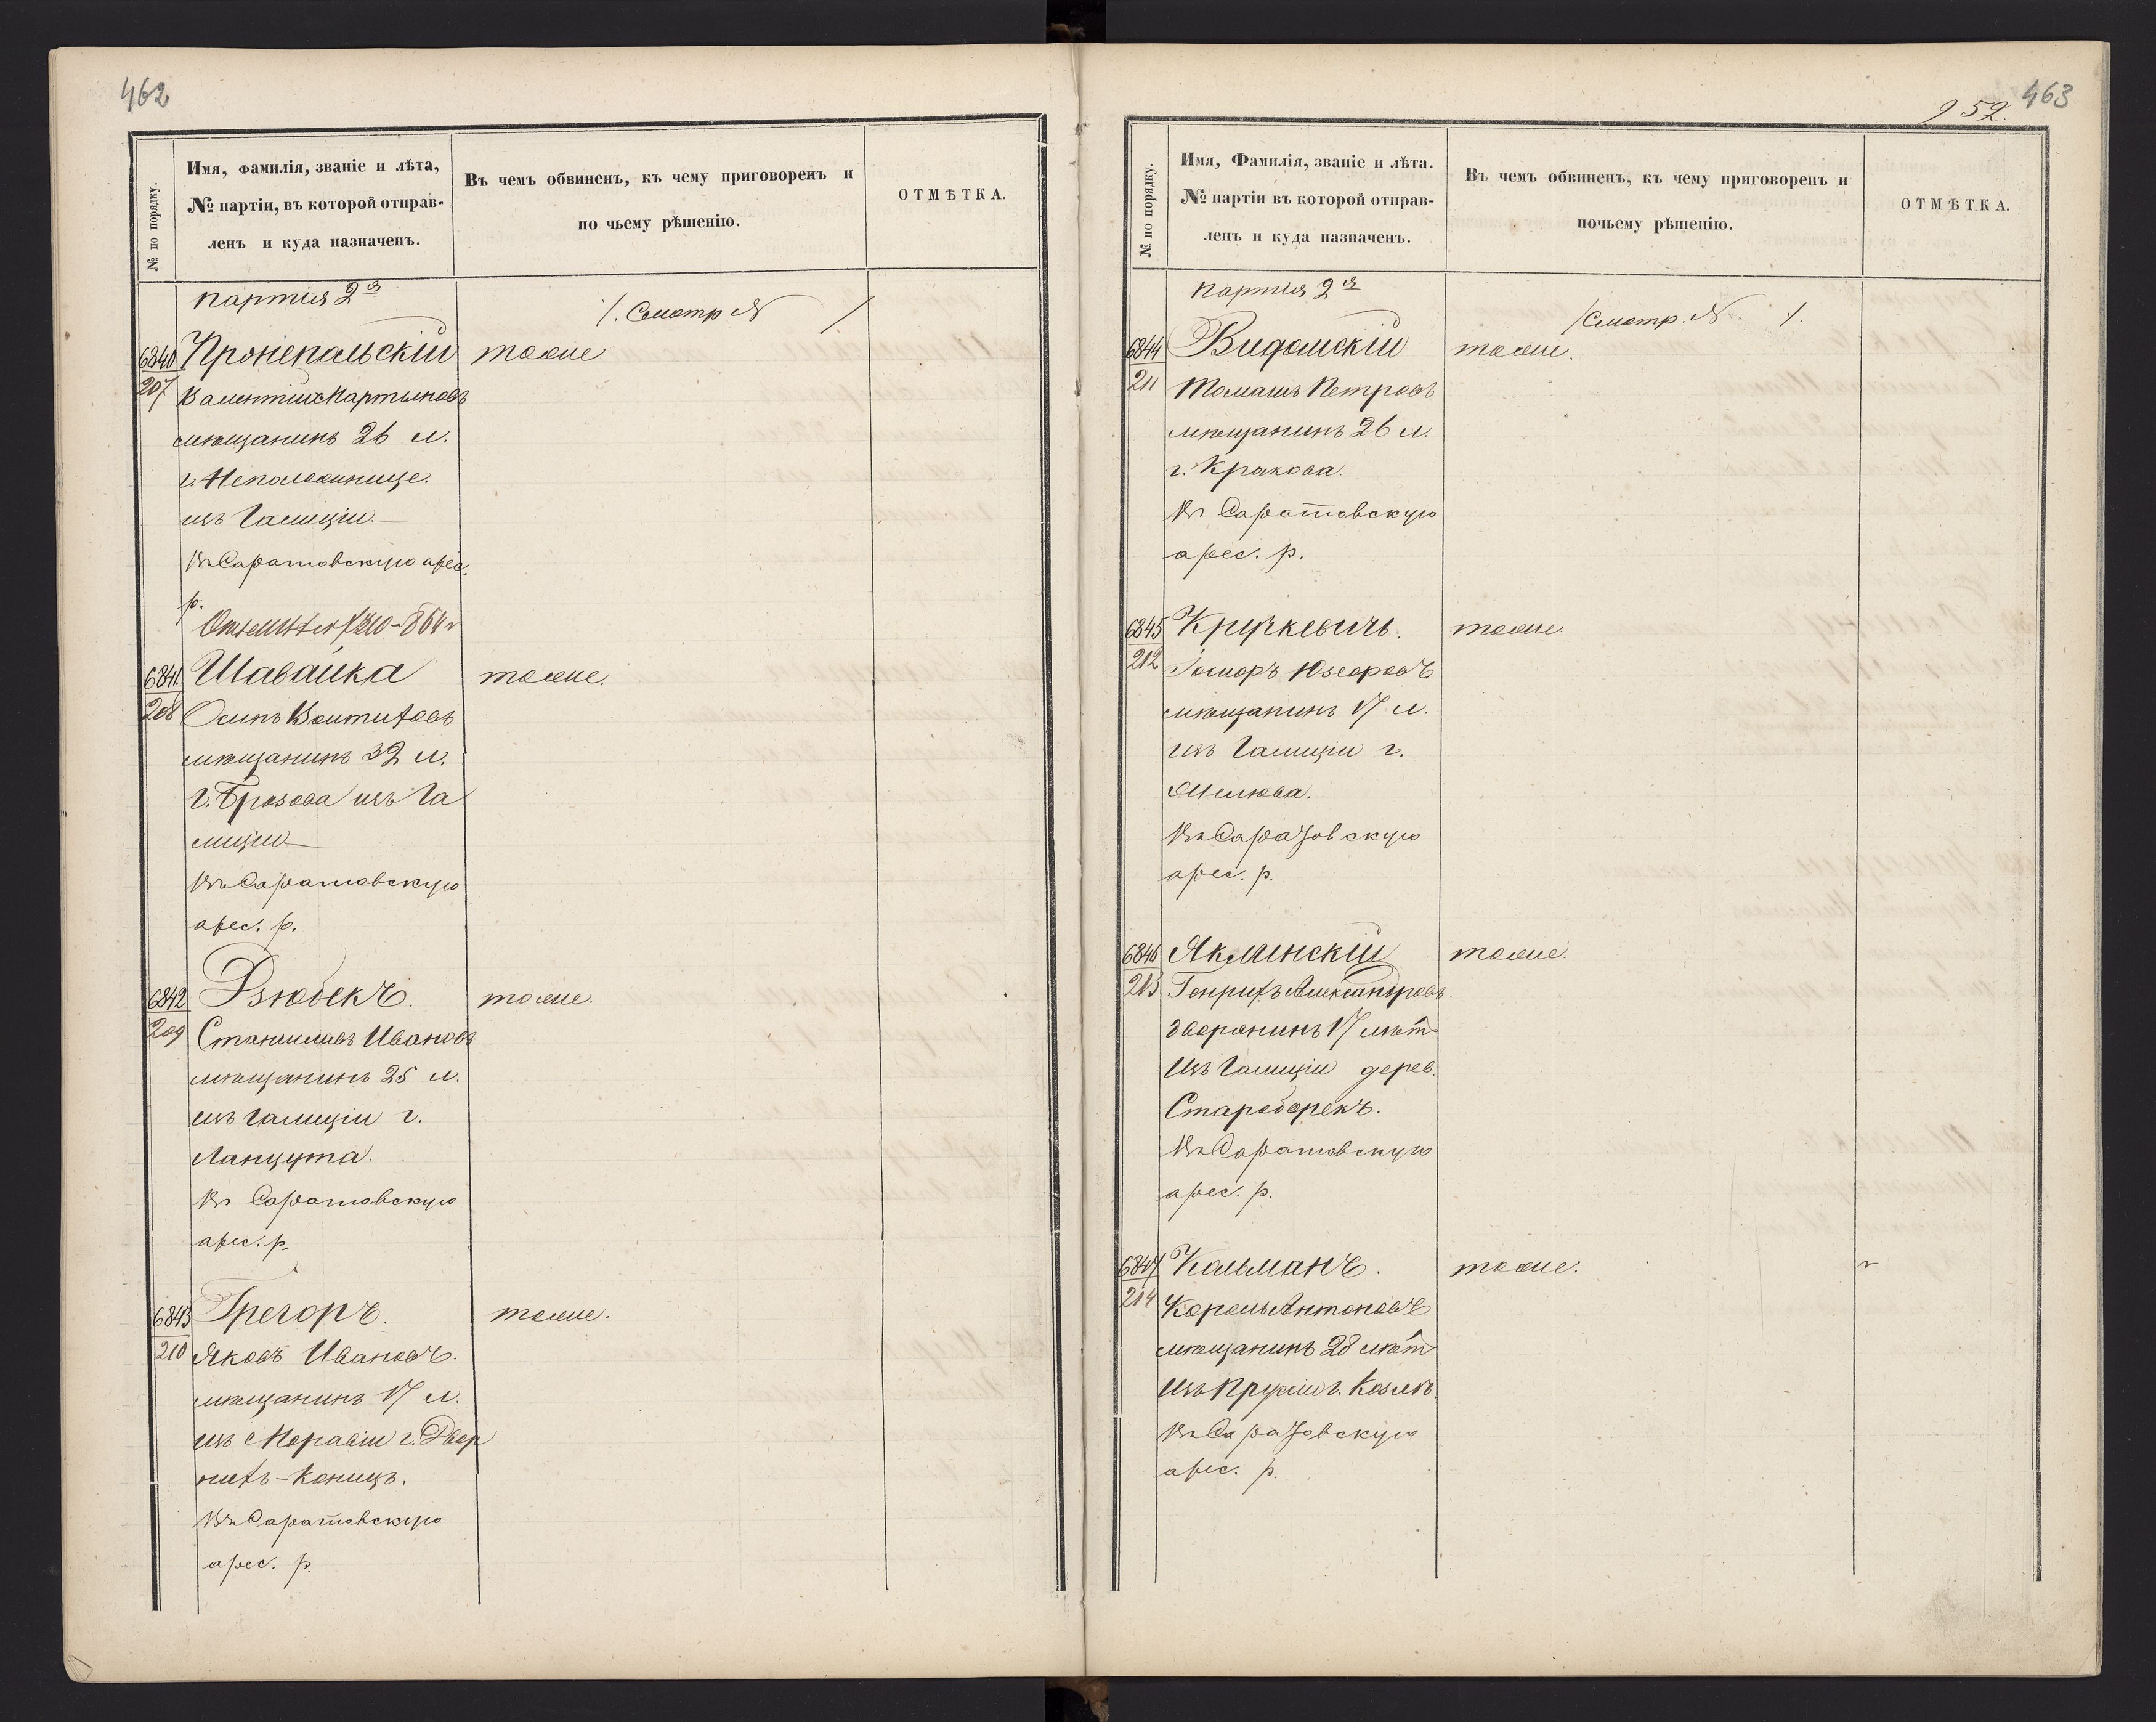 462
№ по порядку.
Имя, фамилія, званіе и лѣта,
№ партіи, въ которой отправ-
ленъ и куда назначенъ.
Въ чемъ обвиненъ, къ чему приговоренъ и
по чьему рѣшенію.
ОТМѢТКА.
партія 2я
/. Смотр №  /
6840
207
тоже
мѣщанинъ 26 л.
изъ Галиціи.
Въ Саратовскую арес.
р.
6841
208
Шавайка
тоже.
Осипъ
мѣщанинъ 32 л.
г. Брозова изъ Га
лиціи
Въ Саратовскую
арес. р.
6842
209
Дзюбекъ.
тоже.
Станиславъ Ивановъ
мѣщанинъ 25 л.
изъ Галиціи г.
Ланцута.
Въ Саратовскую
арес. р.
6843
210
Грегоръ.
тоже.
Яковъ Ивановъ.
мѣщанинъ 17 л.
изъ Моравіи г. Двор
Въ Саратовскую
арес. р.
463
252.
№ по порядку.
Имя, Фамилія, званіе и лѣта.
№ партіи въ которой отправ-
ленъ и куда назначенъ.
Въ чемъ обвиненъ, къ чему приговоренъ и
почьему рѣшенію.
ОТМѢТКА.
партія 2я
/Смотр. №  /.
6844
211
Видомскій
тоже.
Томашъ Петровъ
мѣщанинъ 26 л.
г. Кракова.
Въ Саратовскую
арес. р.
6845
212
Кручкевичъ.
тоже.
мѣщанинъ 17 л.
изъ Галиціи г.
Въ Саратовскую
арес. р.
6846
213
Яклинскій
тоже.
Генрихъ Александровъ.
дворянинъ 17 лѣт
Изъ Галиціи дерев.
Въ Саратовскую
арес. р.
6847
214
Кальманъ.
тоже.
Король Антоновъ
мѣщанинъ 28 лѣт
Изъ Прусіи г.
Въ Саратовскую
арес. р.